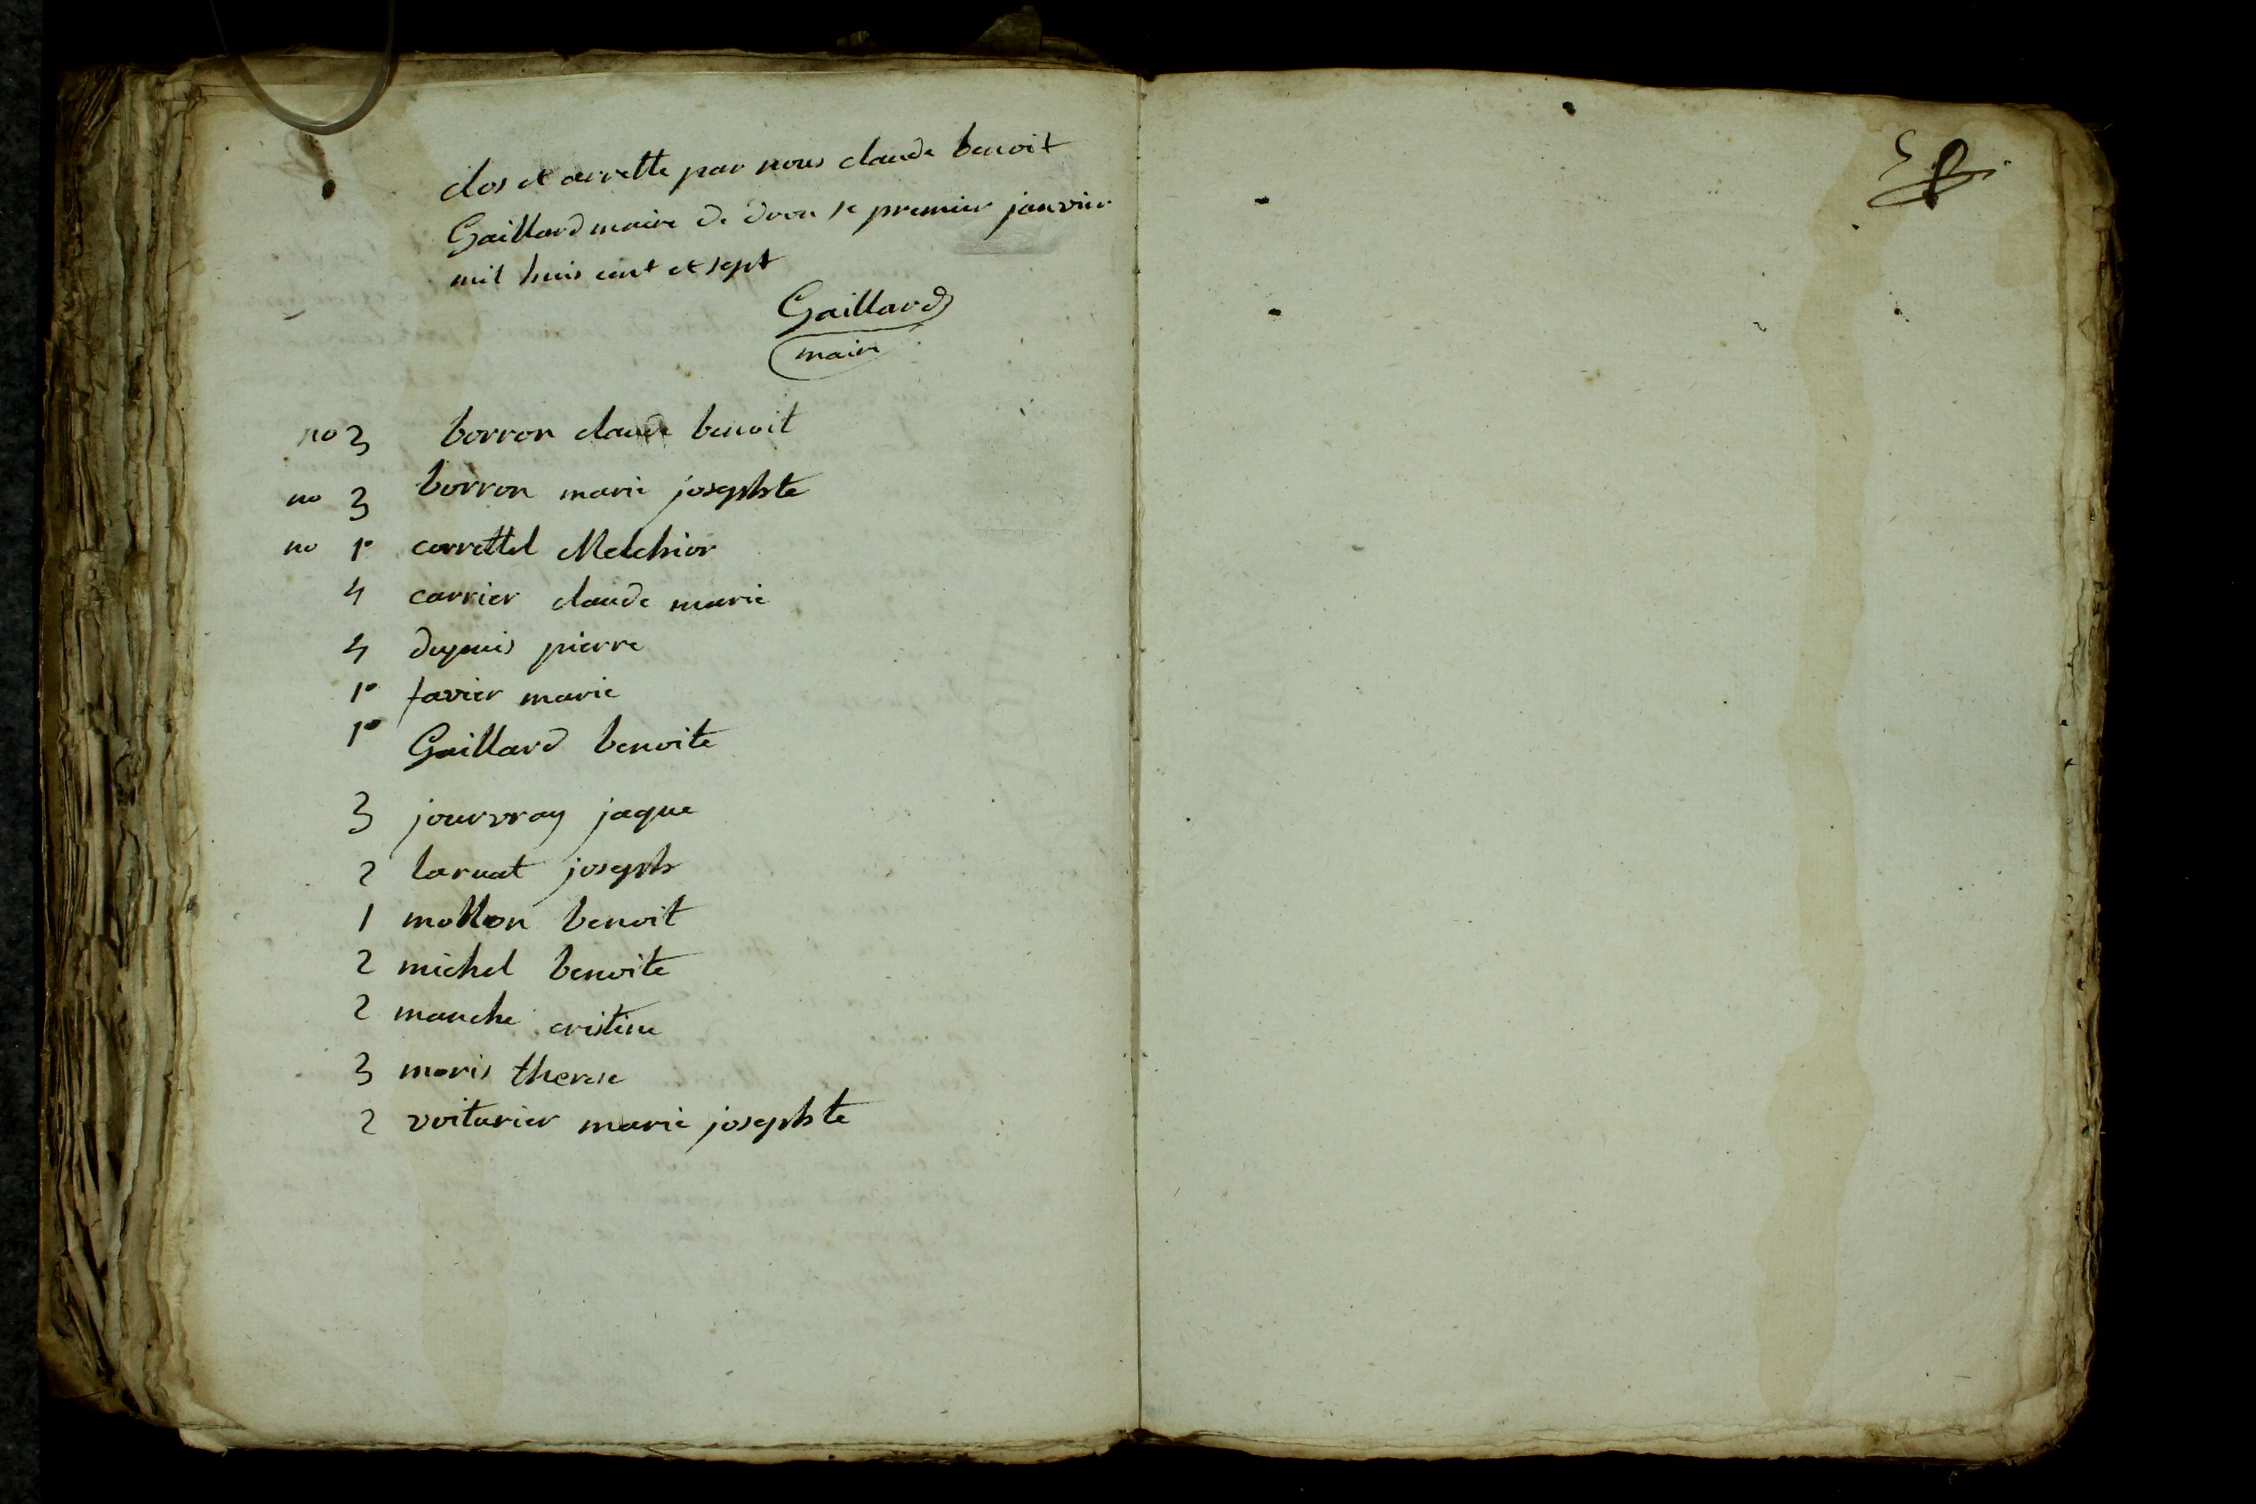 clos et arrette par nous claude benoit
Gaillard maire de drom le premier janvier
mil huis cent et sept
Gaillard
maire
no 3 borron claude benoit
no 3 borron marie josephte
no 1º carrettel Melchior
4 carrier claude marie
4 dupuis pierre
1º favier marie
1º Gaillard benoite
3 jourvray jaque
2 laruat joseph
1 mollon benoit
2 michel benoite
2 manche cristine
3 moris therese
2 voiturier marie josephte